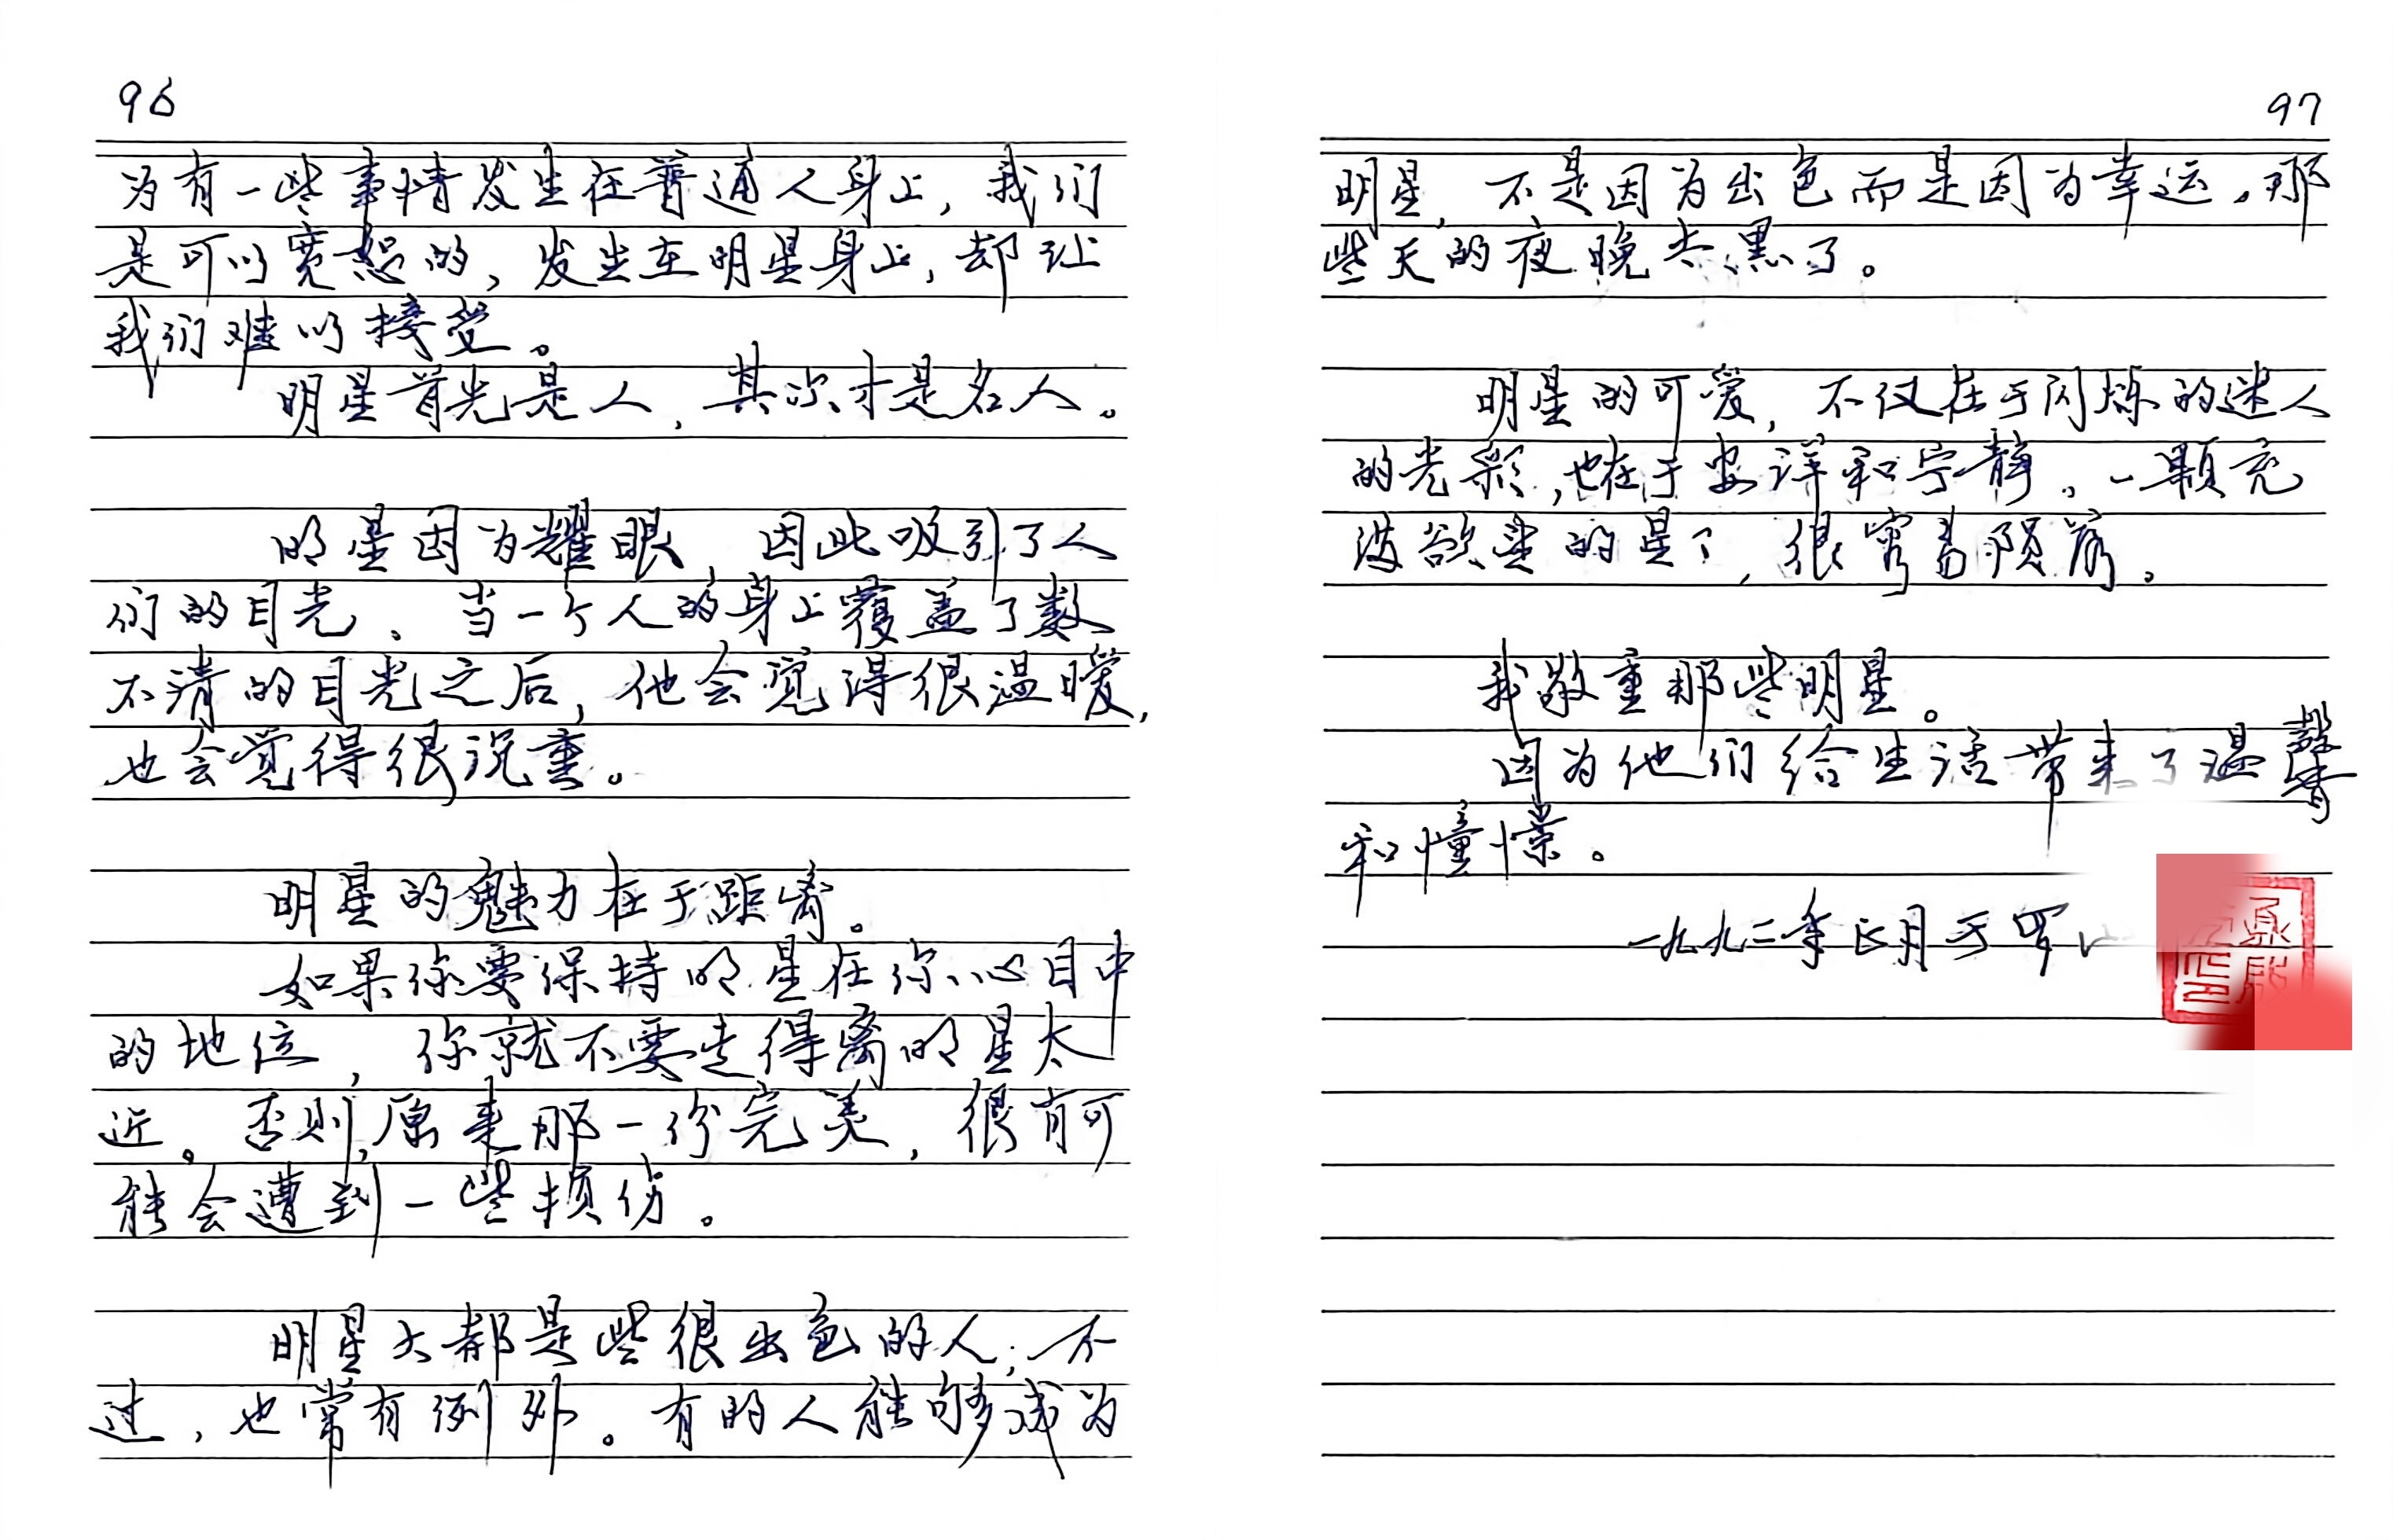 96
为有一些事情发生在普通人身上，我们
是可以宽恕的，发生在明星身上，却让
我们难以接受。
明星首先是人，其次才是名人。
明星因为耀眼，因此吸引了人
们的目光。当一个人的身上覆盖了数
不清的目光之后，他会觉得很温暖，
也会觉得很沉重。
明星的魅力在于距离。
如果你要保持明星在你心目中
的地位，你就不要走得离明星太
近。否则，原来那一份完美，很有可
能会遭到一些损伤。
明星大都是些很出色的人；不
过，也常有例外。有的人能够成为
97
明星，不是因为出色而是因为幸运。那
些天的夜晚太黑了。
明星的可爱，不仅在于闪烁的迷人
的光彩，也在于安详和宁静。一颗充
满欲望的星了，很容易陨落。
我敬重那些明星。
因为他们给生活带来了温馨
和憧憬。
一九九二年正月于罗